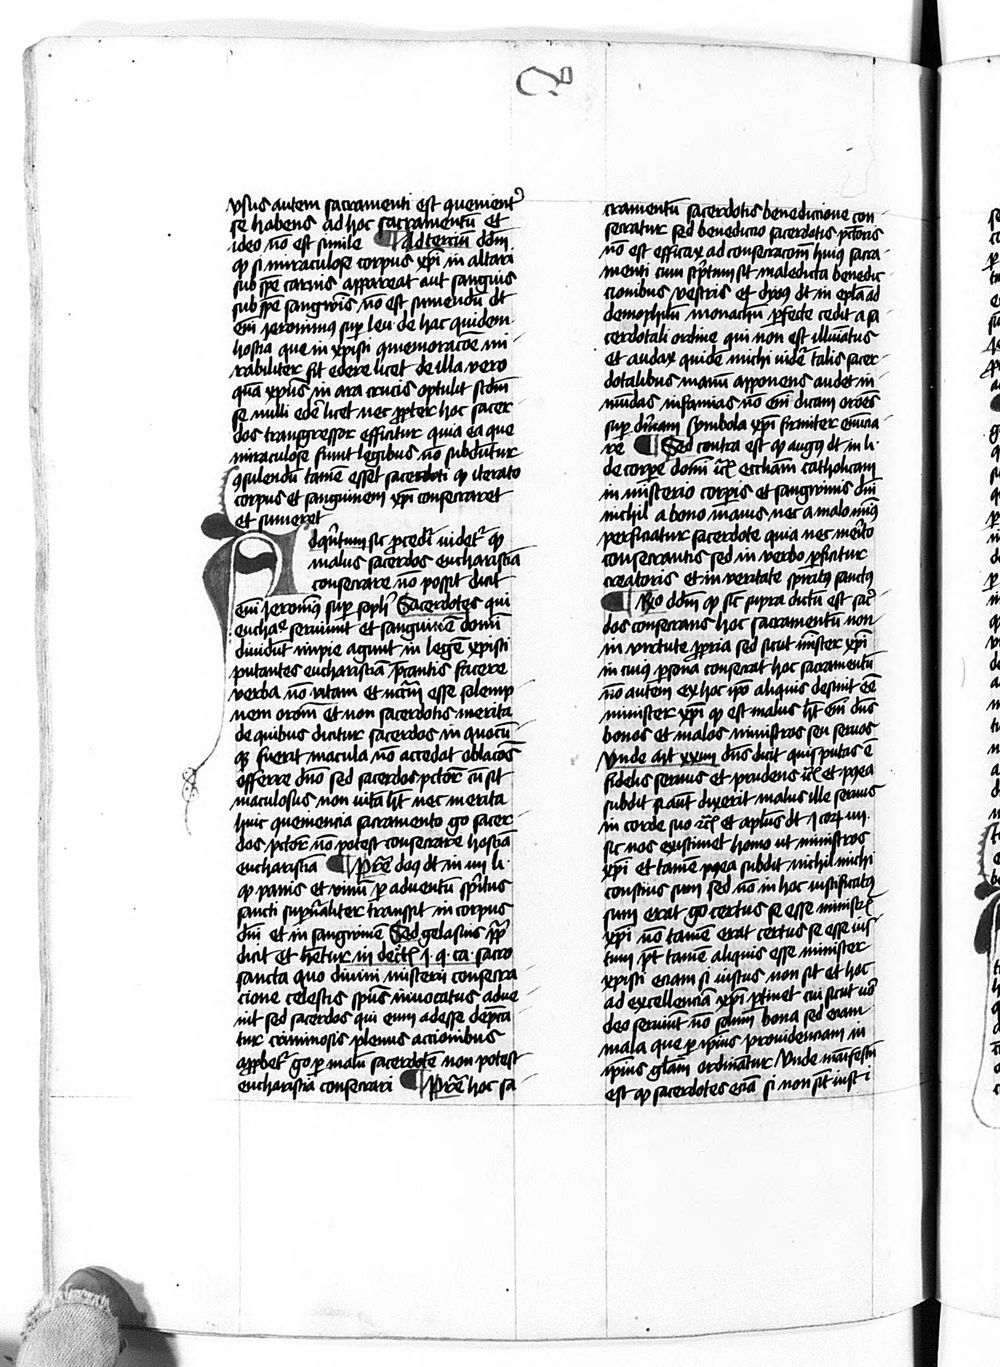 vsus autem sacramenti est quemient᷒
se habens ad hoc sacramentū et
ideo nō est simile ¶ Ad terciū dd̄m
ꝙ si miraculose corpus xp̄i in altari
sub sp̄e carnis appareat aut sanguis
sub sp̄e sangwīs nō est sumendū dt
em̄ Jeronimus sup leui de hac quidem
hostia que in xpisti 9memoracōe mi
rabiliter fit edere licet de illa vero
quā xpūs in ara crucis optulit scdm̄
se nulli ede᷒ licet nec ꝓpter hoc sacer
dos transgressor efficitur quia ea que
miraculose fiunt legibus nō subdūtur
9sulendū tamē esset sacerdoti ꝙ iterato
corpus et sanguinem xp̄i consecraret
et sumeret
Ad quītum sic ꝓcedit᷒ videt᷒ ꝙ
malus sacerdos eucharistiā
consecrare nō possit dicit
em̄ Jeronim9 sup sophō Sacerdotes qui
euchae᷒ seruiunt et sanguinē domī
diuidūt impie agunt in legē xpisti
putantes eucharistiā p̄cantis facere
verba nō vitam et nccīm esse solemp
nem orōm et non sacerdotis merita
de quibus dicitur sacerdos in quocū
qꝫ fuerit macula nō accedat oblacōes
offerre dn̄o sed sacerdos pctōr cū sit
maculosus non vitā hꝫ nec merita
huic quemencia sacramento go sacer
dos pctōr nō potest consecrare hostiā
eucharistiā ¶ Pret̄ dog dt in iiii li·
ꝙ panis et vinū ꝑ aduentū sp̄itus
sancti sup̄naliter transit in corpus
dn̄i et in sangwinē Sed gelasius pp̄
dicit et hētur in dect̄ꝭ j· q· ca· sacro
sancta quo diuini misterii consecra
cione celestis sp̄us inuocatus adue
nit sed sacerdos qui eum adesse dep̄ca
tur criminosis plenus accionibus
apꝓbet᷒ go ꝑ malū sacerdotē non potest
eucharistia consecrari ¶ Pret̄ hoc sa
cramentū sacerdotis benedictione con
secratur sed benedictio sacerdotis pctōris
nō est efficax ad consecracōm hui9 sacra
menti cum sc̄ptum sit maledicta benedic
tionibus vestris et dyon9 dt in epl̄a ad
demophilū monachū ꝑfecte cedit a sa
cerdotali ordine qui non est illuīatus
et audax quidē michi videt᷒ talis sacer
dotalibus manū apponens audet in
mūdas infamias nō em̄ dicam orōes
sup diuinam symbola xp̄i firmiter enūcia
re ¶ Sed contra est ꝙ aug9 dt in li·
de corpe domī ic̄ꝭ eccl̄iam catholicam
in mīsterio corpis et sangwinis dn̄i
nichil a bono mai9 nec a malo min9
perficiatur sacerdote quia nec meīto
consecrantis sed in verbo ꝑficitur
creatoris et in veritate spirit9 sanct9
¶ Rō dd̄m ꝙ sic supra dictū est sac᷒
dos consecrans hoc sacramentū non
in virtute ꝓpria sed sicut mīster xp̄i
in cui9 ꝑsona consecrat hoc sacramentū
nō autem ex hoc ip̄o aliquis desinit eē
minister xp̄i ꝙ est malus hꝫ em̄ dn̄s
bonos et malos ministros seu seruos
Vnde mt xxiiii dn̄s dicit quis putas ē
fidelis seruus et prudens ic̄ꝭ et p9ea
subdit si aūt dixerit malus ille seruus
in corde suo ic̄ꝭ et apl̄us dt j cor iiii·
sic nos existimet homo ut ministros
xp̄i et tamē p9ea subdit nichil michi
conscius sum sed nō in hoc iustificat9
sum erat go certus se esse ministr̄
xp̄i nō tamē erat certus se esse ius
tum pt tamē aliquis esse minister
xpisti eciam si iustus non sit et hoc
ad excellenciā xp̄i ꝑtinet cui sicut vēo
deo seruiūt nō solum bona sed eciam
mala que ꝑ ip̄ius prouidenciam in
ip̄ius gl̄iam ordināntur Vnde manifestū
est ꝙ sacerdotes eciā si non sīt iusti